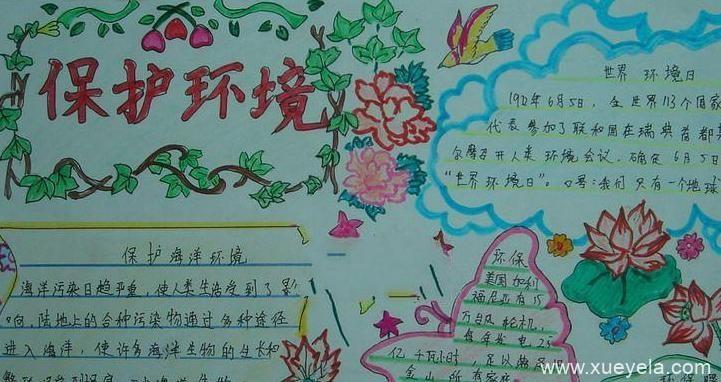 保护环境
世界 环境日
1972年6月5日，全世界113个国家
代表参加了联和国在瑞典首都
尔摩召开人类环境会议，确定6月5日
“世界环境日”。口号：我们只有一个地球
保护海洋环境
海洋污染日趋严重，使人类生活受到了影
响，陆地上的各种污染物通过多种途径
进入海洋，使许多海洋生物的生长和
环保
美国加利
福尼亚有15
万台风轮机，
每年发电25
亿千瓦小时，足以满足旧
金山所有家庭
www.xueyela.com